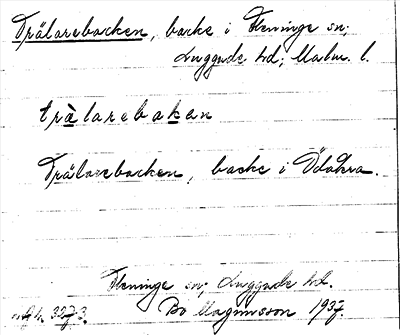 Trälarebacken, backe i Fleninge sn;
Luggude hd; Malm. l.
trälarebaken
Trälarebacken, backe i Ödåkra.
Fleninge sn; Luggude hd.
Bo Magnusson 1937.